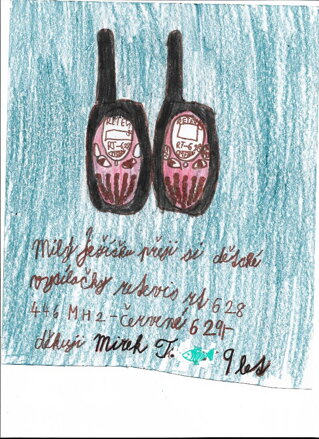 RETEVIS
RT-628
RT-628
Milý Ježíšku přeji si dětské
vysílačky retevis rt 628
446 MHz - červené 629,-
děkuji Mirek T. 9 let